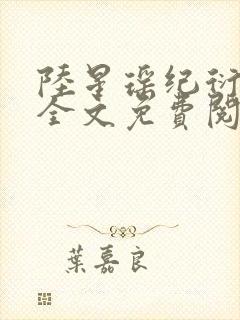 陸星瑤纪衍
全文免費閱
葉嘉良